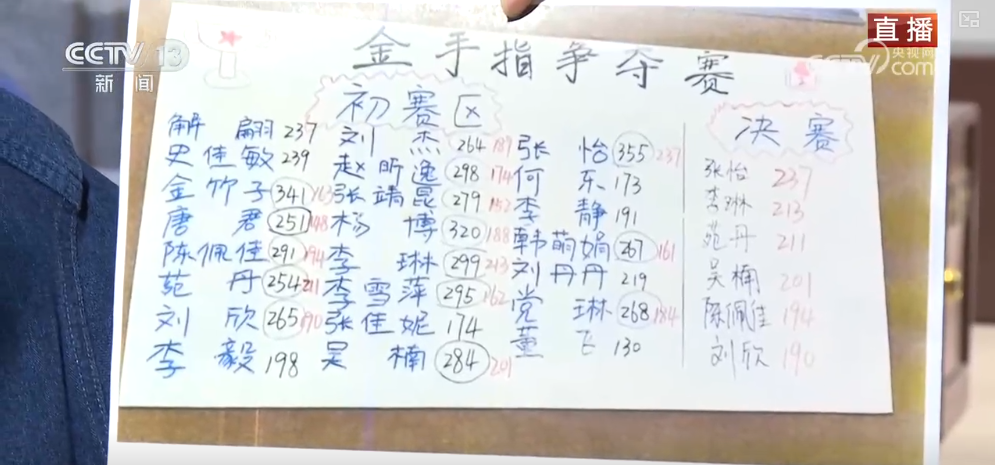 CCTV 13
新闻
直播
央视网
TV.com
金手指争夺赛
初赛区
决赛
解翩 237 刘杰 264 189 张怡 355 237
史佳敏 239 赵昕逸 298 174 何东 173
金竹子 341 163 张靖昆 279 152 李静 191
唐君 251 148 杨博 320 188 韩萌娟 267 161
陈佩佳 291 194 李琳 299 213 刘丹丹 219
苑丹 254 211 李雪萍 295 162 党琳 268 184
刘欣 265 190 张佳妮 174 董飞 130
李毅 198 吴楠 284 201
张怡 237
李琳 213
苑丹 211
吴楠 201
陈佩佳 194
刘欣 190